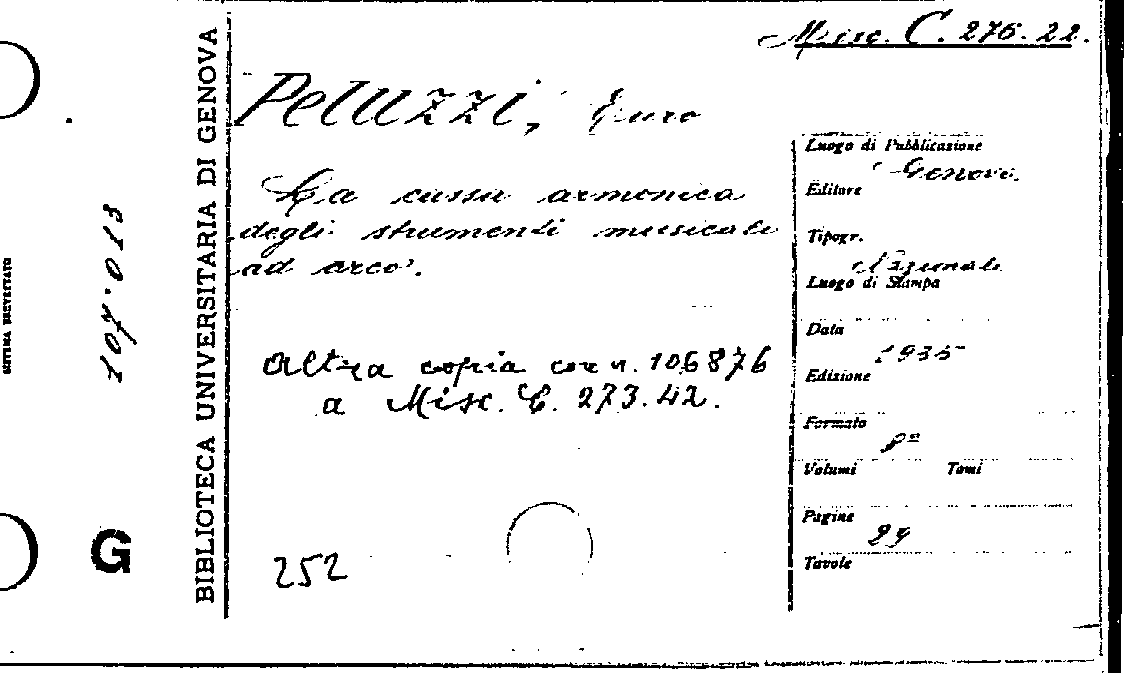 Misc. C. 276. 22.
Peluzzi, Euro
La cassa armonica
degli strumenti musicali
ad arco.
Altra copia con n. 106876
a Misc. C. 273.42.
252
Luogo di Pubblicazione
Genova.
Editore
Tipogr.
Nazionale
Luogo di Stampa
Data
1935
Edizione
Formato
8º
Volumi Tomi
Pagine
29
Tavole
BIBLIOTECA UNIVERSITARIA DI GENOVA
G
SISTEMA BREVETTATO